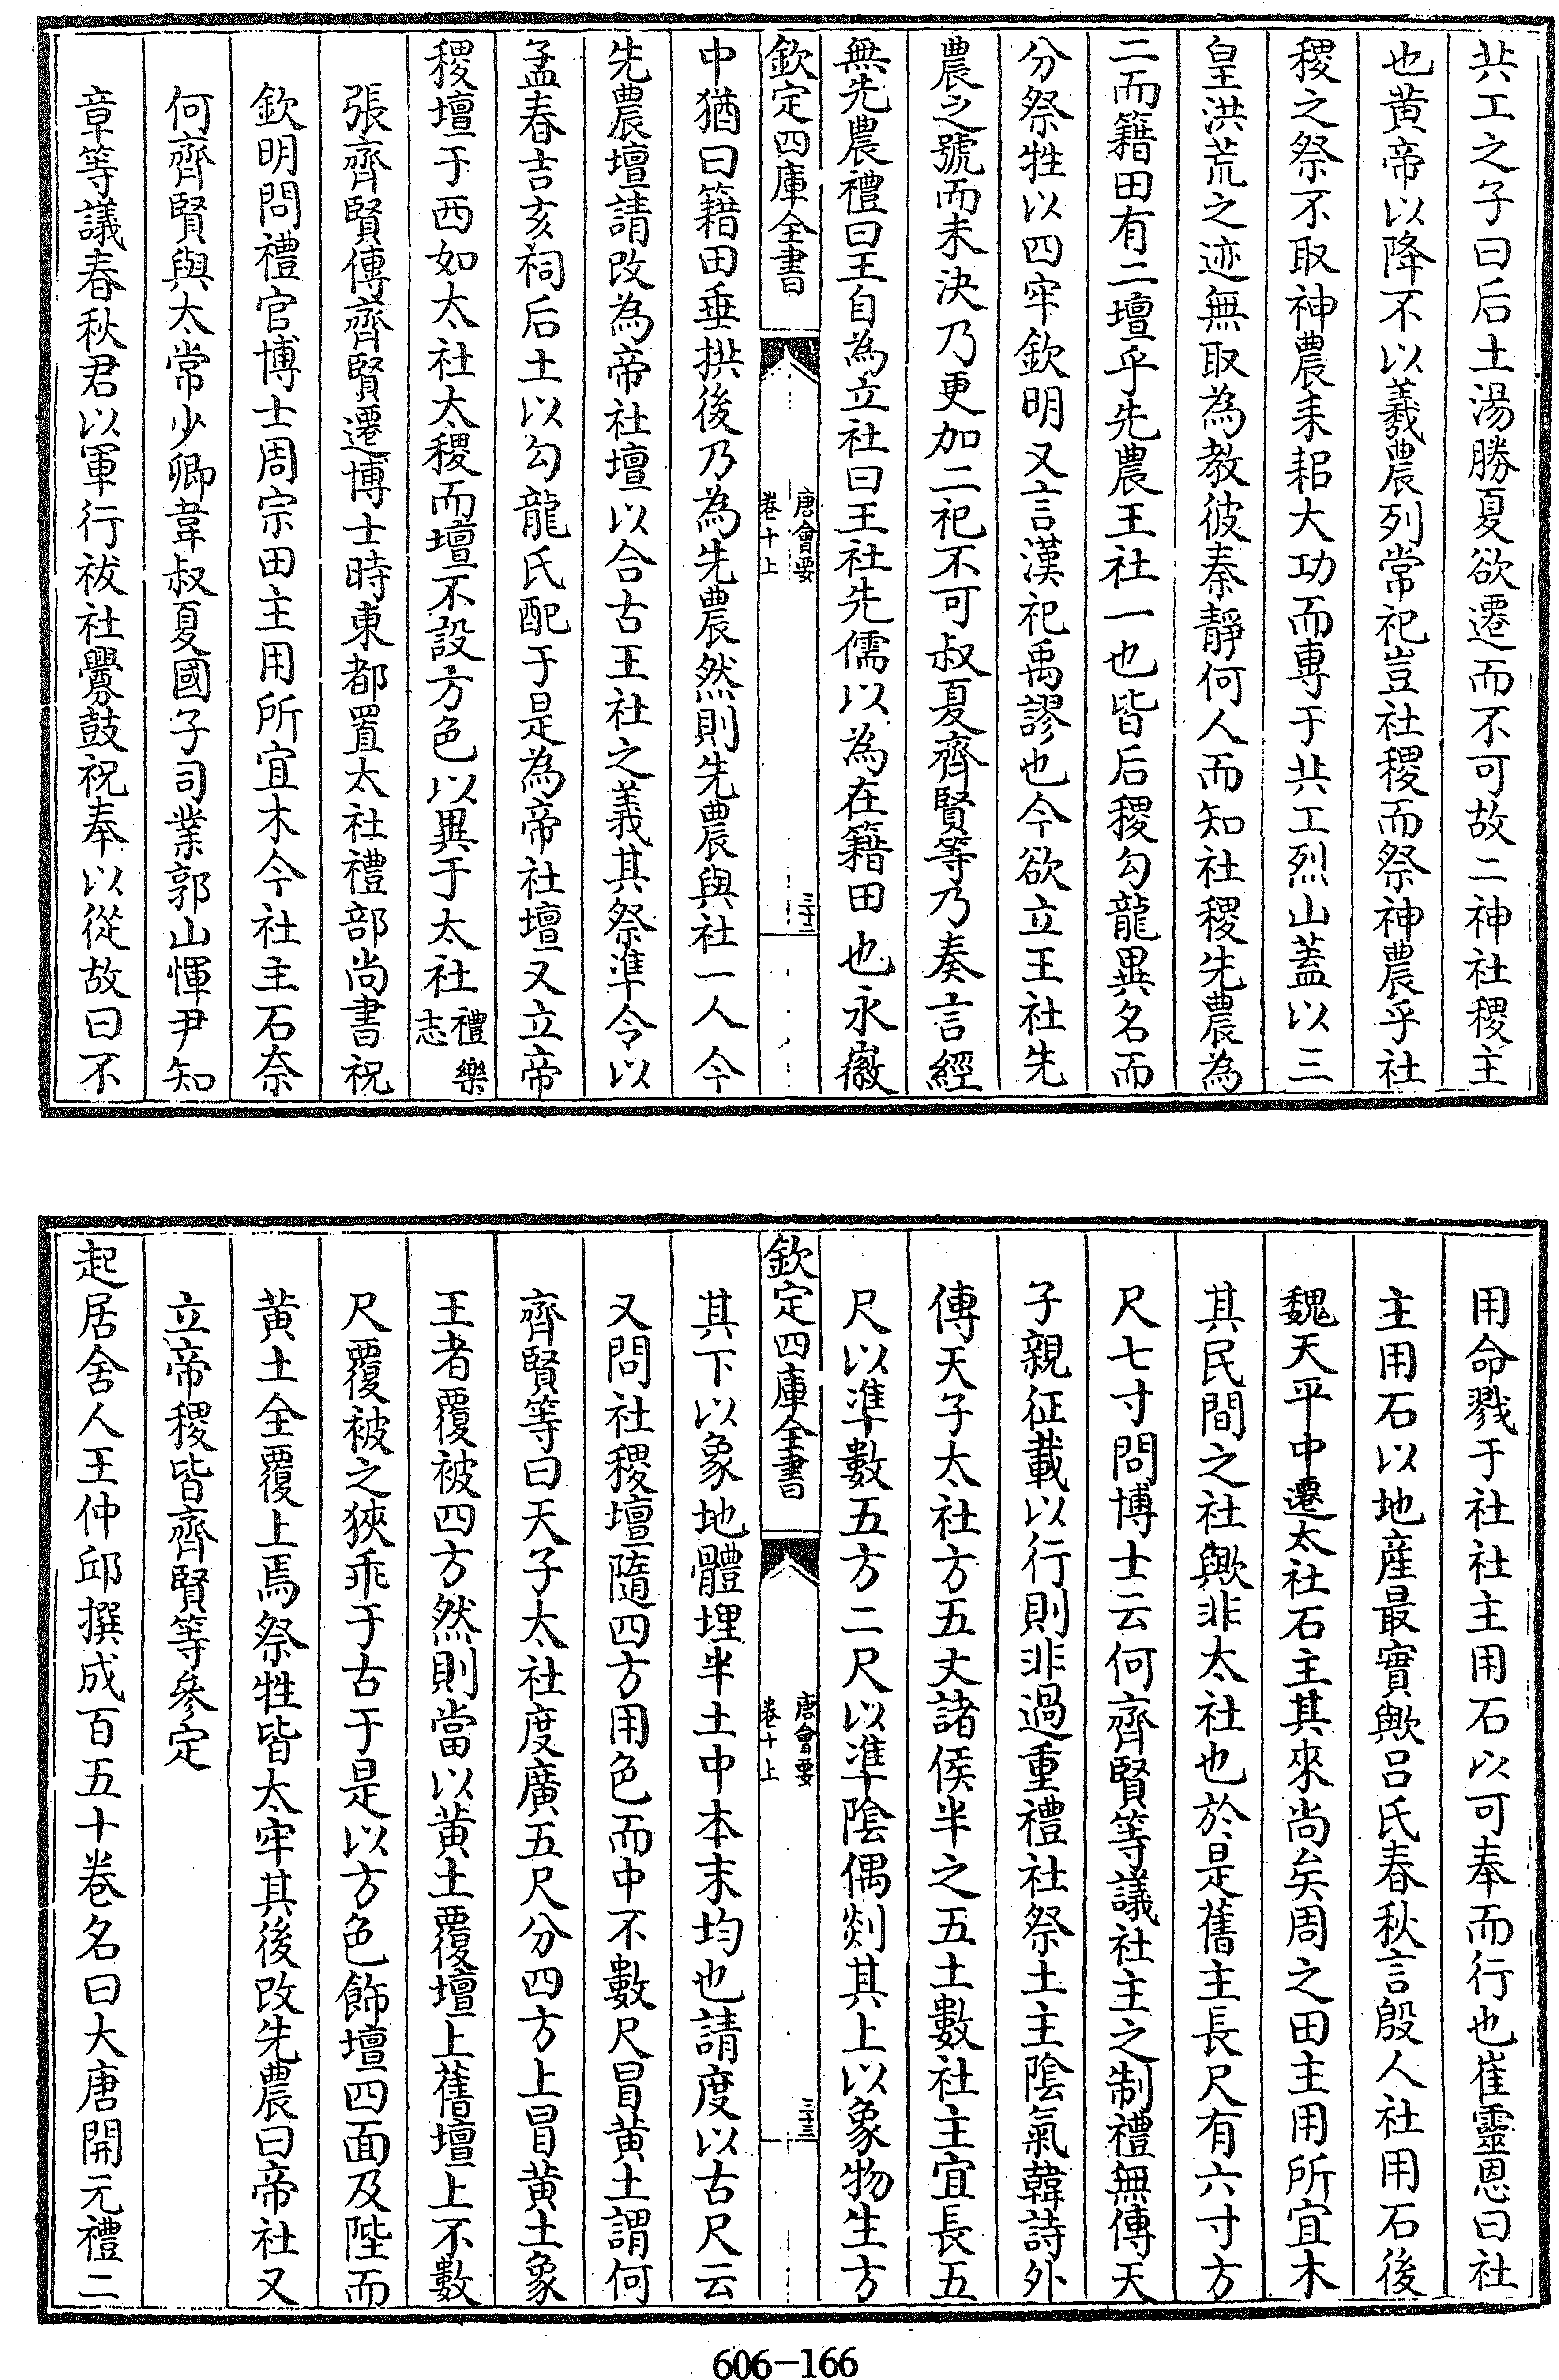 共工之子曰后土湯勝夏欲遷而不可故二神社稷主
也黄帝以降不以羲農列常祀豈社稷而祭神農乎社
稷之祭不取神農耒耜大功而專于共工烈山蓋以三
皇洪荒之迹無取為教彼秦靜何人而知社稷先農為
二而籍田有二壇乎先農王社一也皆后稷勾龍異名而
分祭牲以四牢欽明又言漢祀禹謬也今欲立王社先
農之號而未決乃更加二祀不可叔夏齊賢等乃奏言經
無先農禮曰王自為立社曰王社先儒以為在籍田也永徽
欽定四庫全書
唐會要
卷十上
三十二
中猶曰籍田垂拱後乃為先農然則先農與社一人今
先農壇請改為帝社壇以合古王社之義其祭準令以
孟春吉亥祠后土以勾龍氏配于是為帝社壇又立帝
稷壇于西如太社太稷而壇不設方色以異于太社禮樂
志
張齊賢傳齊賢遷博士時東都置太社禮部尚書祝
欽明問禮官博士周宗田主用所宜木今社主石奈
何齊賢與太常少卿韋叔夏國子司業郭山惲尹知
章等議春秋君以軍行祓社釁鼓祝奉以從故曰不
用命戮于社社主用石以可奉而行也崔靈恩曰社
主用石以地産最實歟吕氏春秋言殷人社用石後
魏天平中遷太社石主其來尚矣周之田主用所宜木
其民間之社歟非太社也於是舊主長尺有六寸方
尺七寸問博士云何齊賢等議社主之制禮無傳天
子親征載以行則非過重禮社祭土主陰氣韓詩外
傳天子太社方五丈諸侯半之五土數社主宜長五
尺以準數五方二尺以準陰偶剡其上以象物生方
欽定四庫全書
唐會要
卷十上
三十三
其下以象地體埋半土中本末均也請度以古尺云
又問社稷壇隨四方用色而中不數尺冒黄土謂何
齊賢等曰天子太社度廣五尺分四方上冒黄土象
王者覆被四方然則當以黄土覆壇上舊壇上不數
尺覆被之狹乖于古于是以方色飾壇四面及陛而
黄土全覆上焉祭牲皆太牢其後改先農曰帝社又
立帝稷皆齊賢等參定
起居舍人王仲邱撰成百五十卷名曰大唐開元禮二
606-166